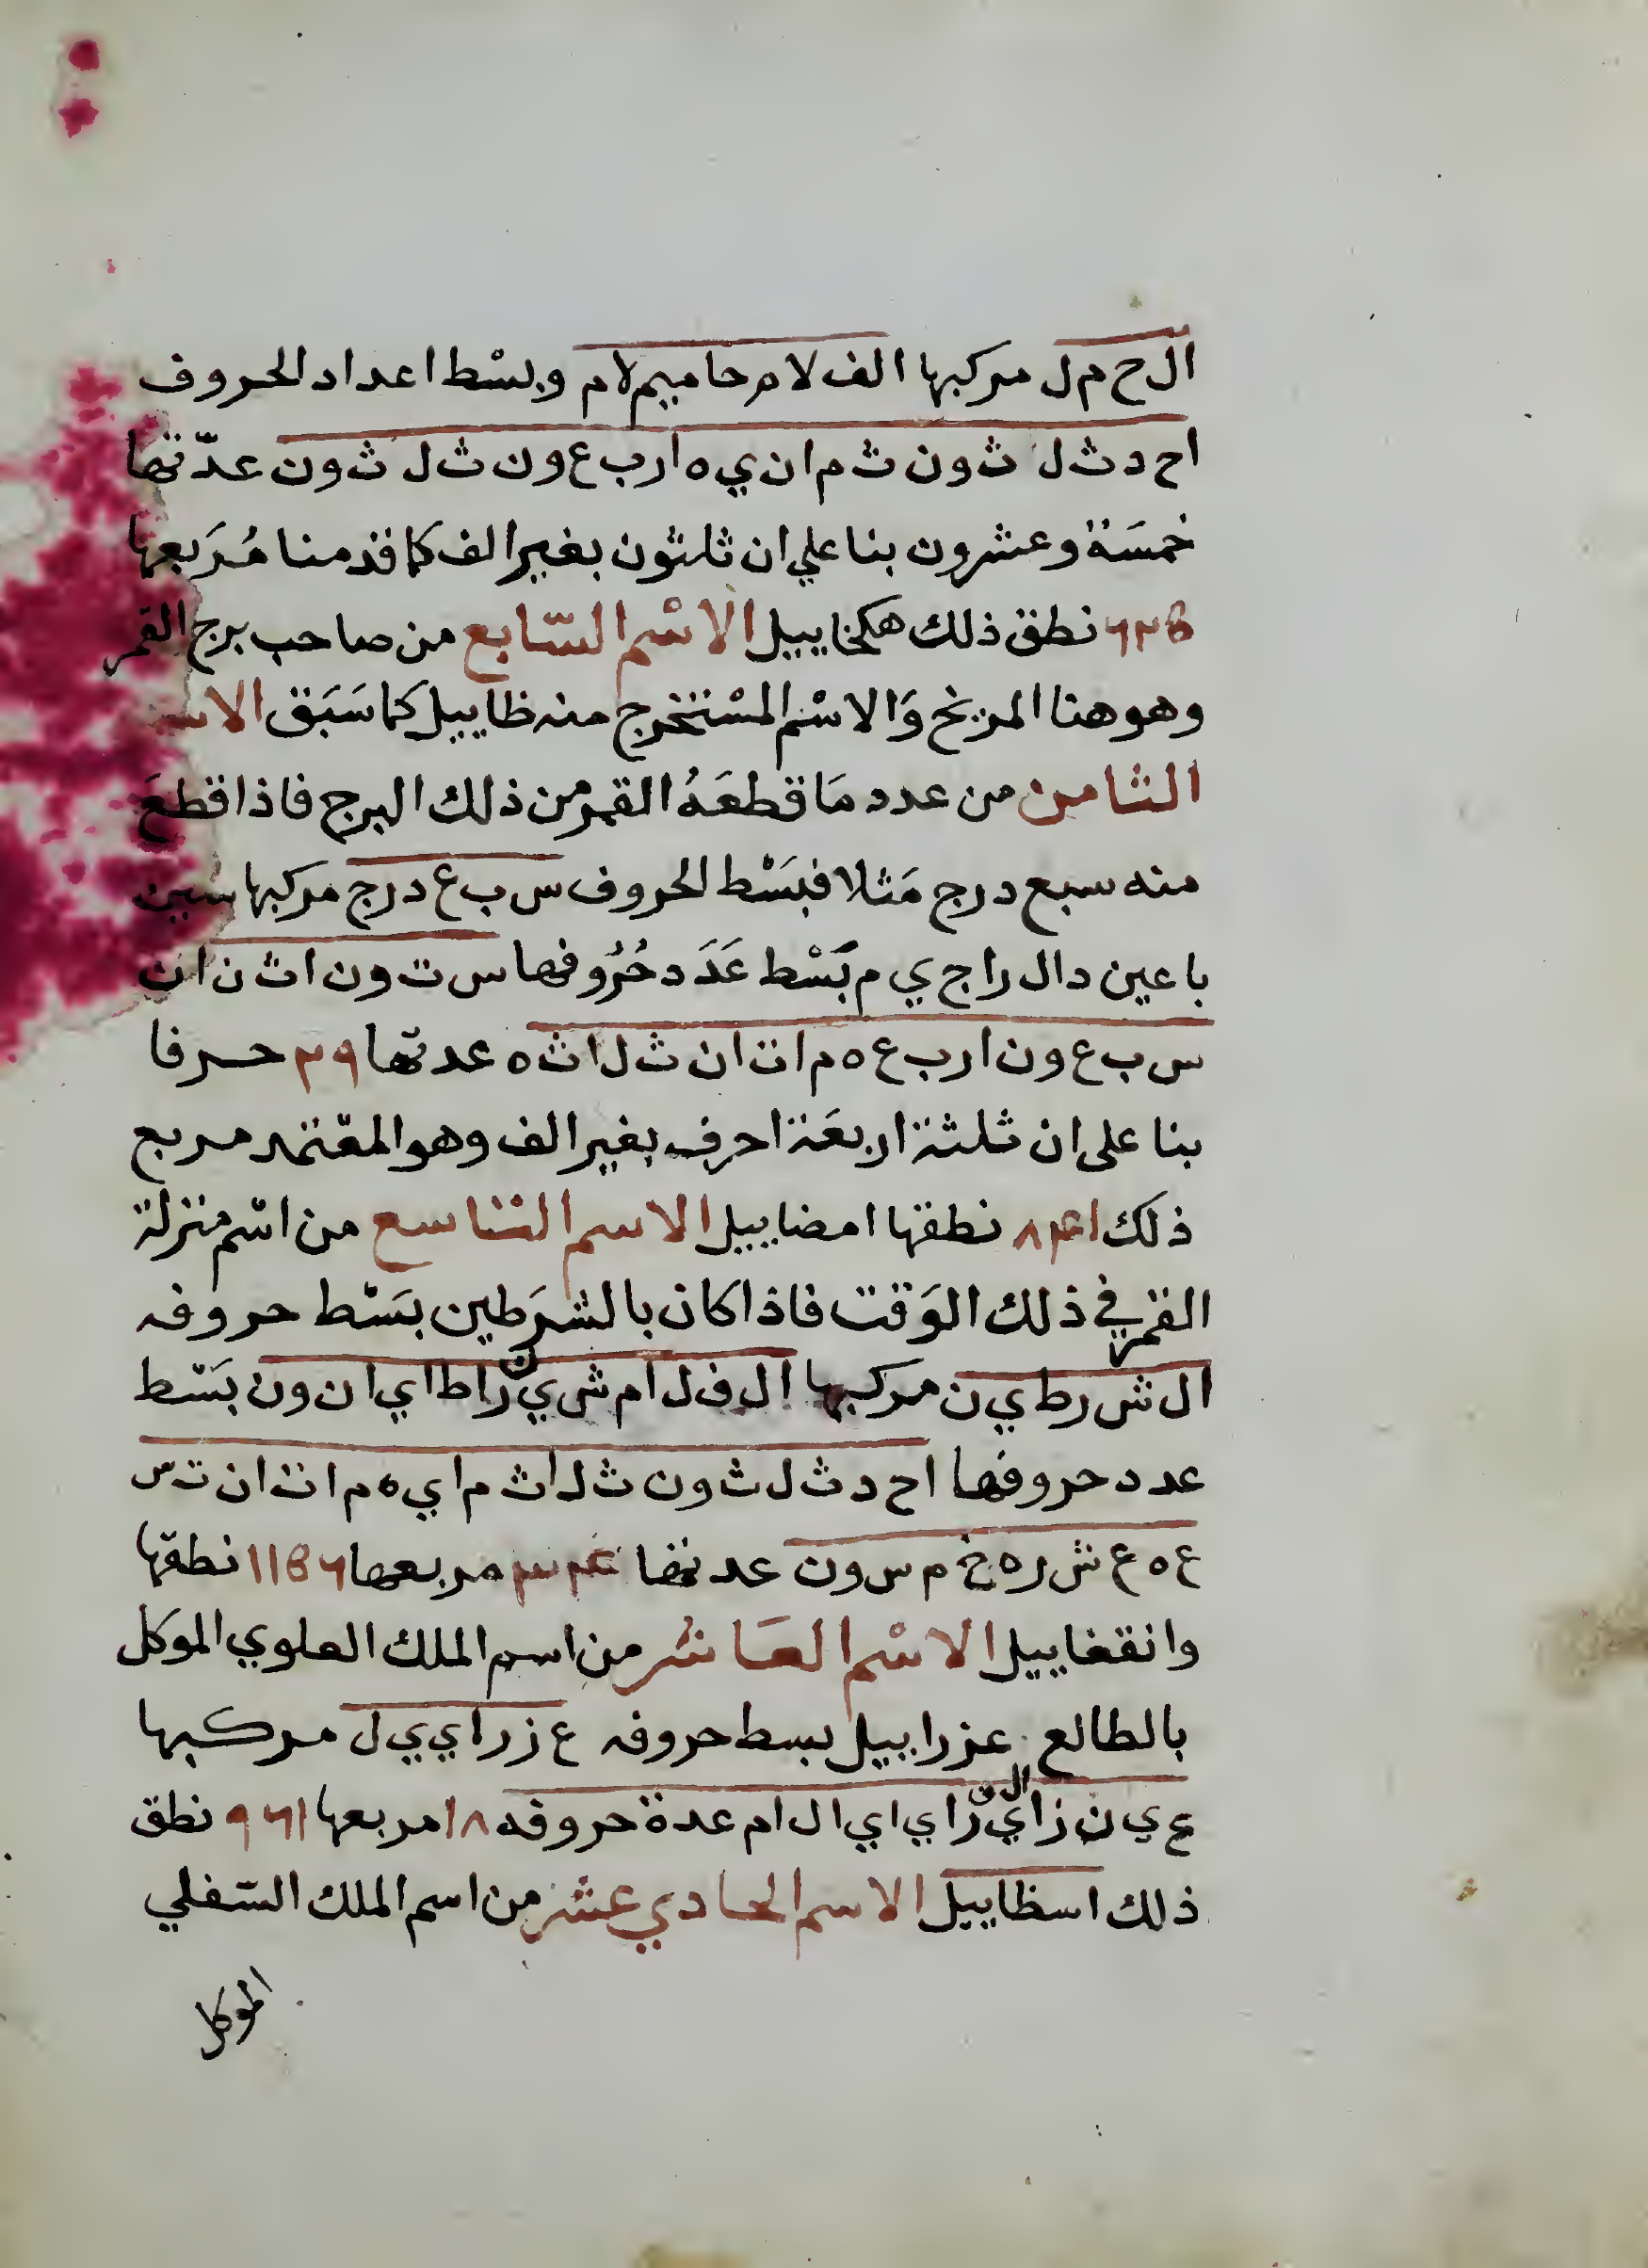 ال ح م ل مركبها الف لام حا ميم لام وبسْط اعداد الحروف
اح د ث ل ث ون ث م ان ي ه ا ر ب ع ون ث ل ث ون عدّتها
خمسَة وعشرون بنا علي ان ثلثون بغير الف كما قدمنا مُرَبعها
٦٢٥ نطق ذلك هكخاييل الاسْم السّابع من صاحب برج القمر
وهو هنا المريخ وَالاسْم المسْتخرج منه ظاييل كما سَبَق الاسم
الثامن من عدد مَا قطعَهُ القمر من ذلك البرج فاذا قطعَ
منه سبع درج مَثلا فبَسْط الحروف س ب ع د ر ج مركبها سين
با عين دال را ج ي م بَسْط عَدَد حُرُوفها س ت ون ا ث ن ا ن
س ب ع ون ا ر ب ع ه م ا ت ا ن ث ل ا ث ه عدتها ٢٩ حرفا
بنا على ان ثلثة اربعَة احرف بغير الف وهو المعْتمد مربع
ذلك ٨٤١ نطقها امضاييل الاسم التاسع من اسْم منزلة
القمر في ذلك الوَقت فاذا كان بالشرَطين بسَط حروفه
ال ش ر ط ي ن مركبها ال ف ل ا م ش ي ن ر ا ط ا ي ا ن ون بَسْط
عدد حروفها اح د ث ل ث ون ث ل ا ث م ا ي ه م ا ت ا ن ت س
ع ه ع ش ر ه خ م س ون عدتها ٣٤ مربعها ١١٥٦ نطقها
وانقغاييل الاسْم العَاشر من اسم الملك العلوي الموكل
بالطالع عزراييل بسط حروفه ع ز ر ا ي ي ل مركبها
ع ي ن ز ا ي ر ا ال ف ي ا ي ا ل ا م عدة حروفه ١٨ مربعها ٩٦١ نطق
ذلك اسظاييل الاسم الحادي عشر من اسم الملك السّفلي
الموكل